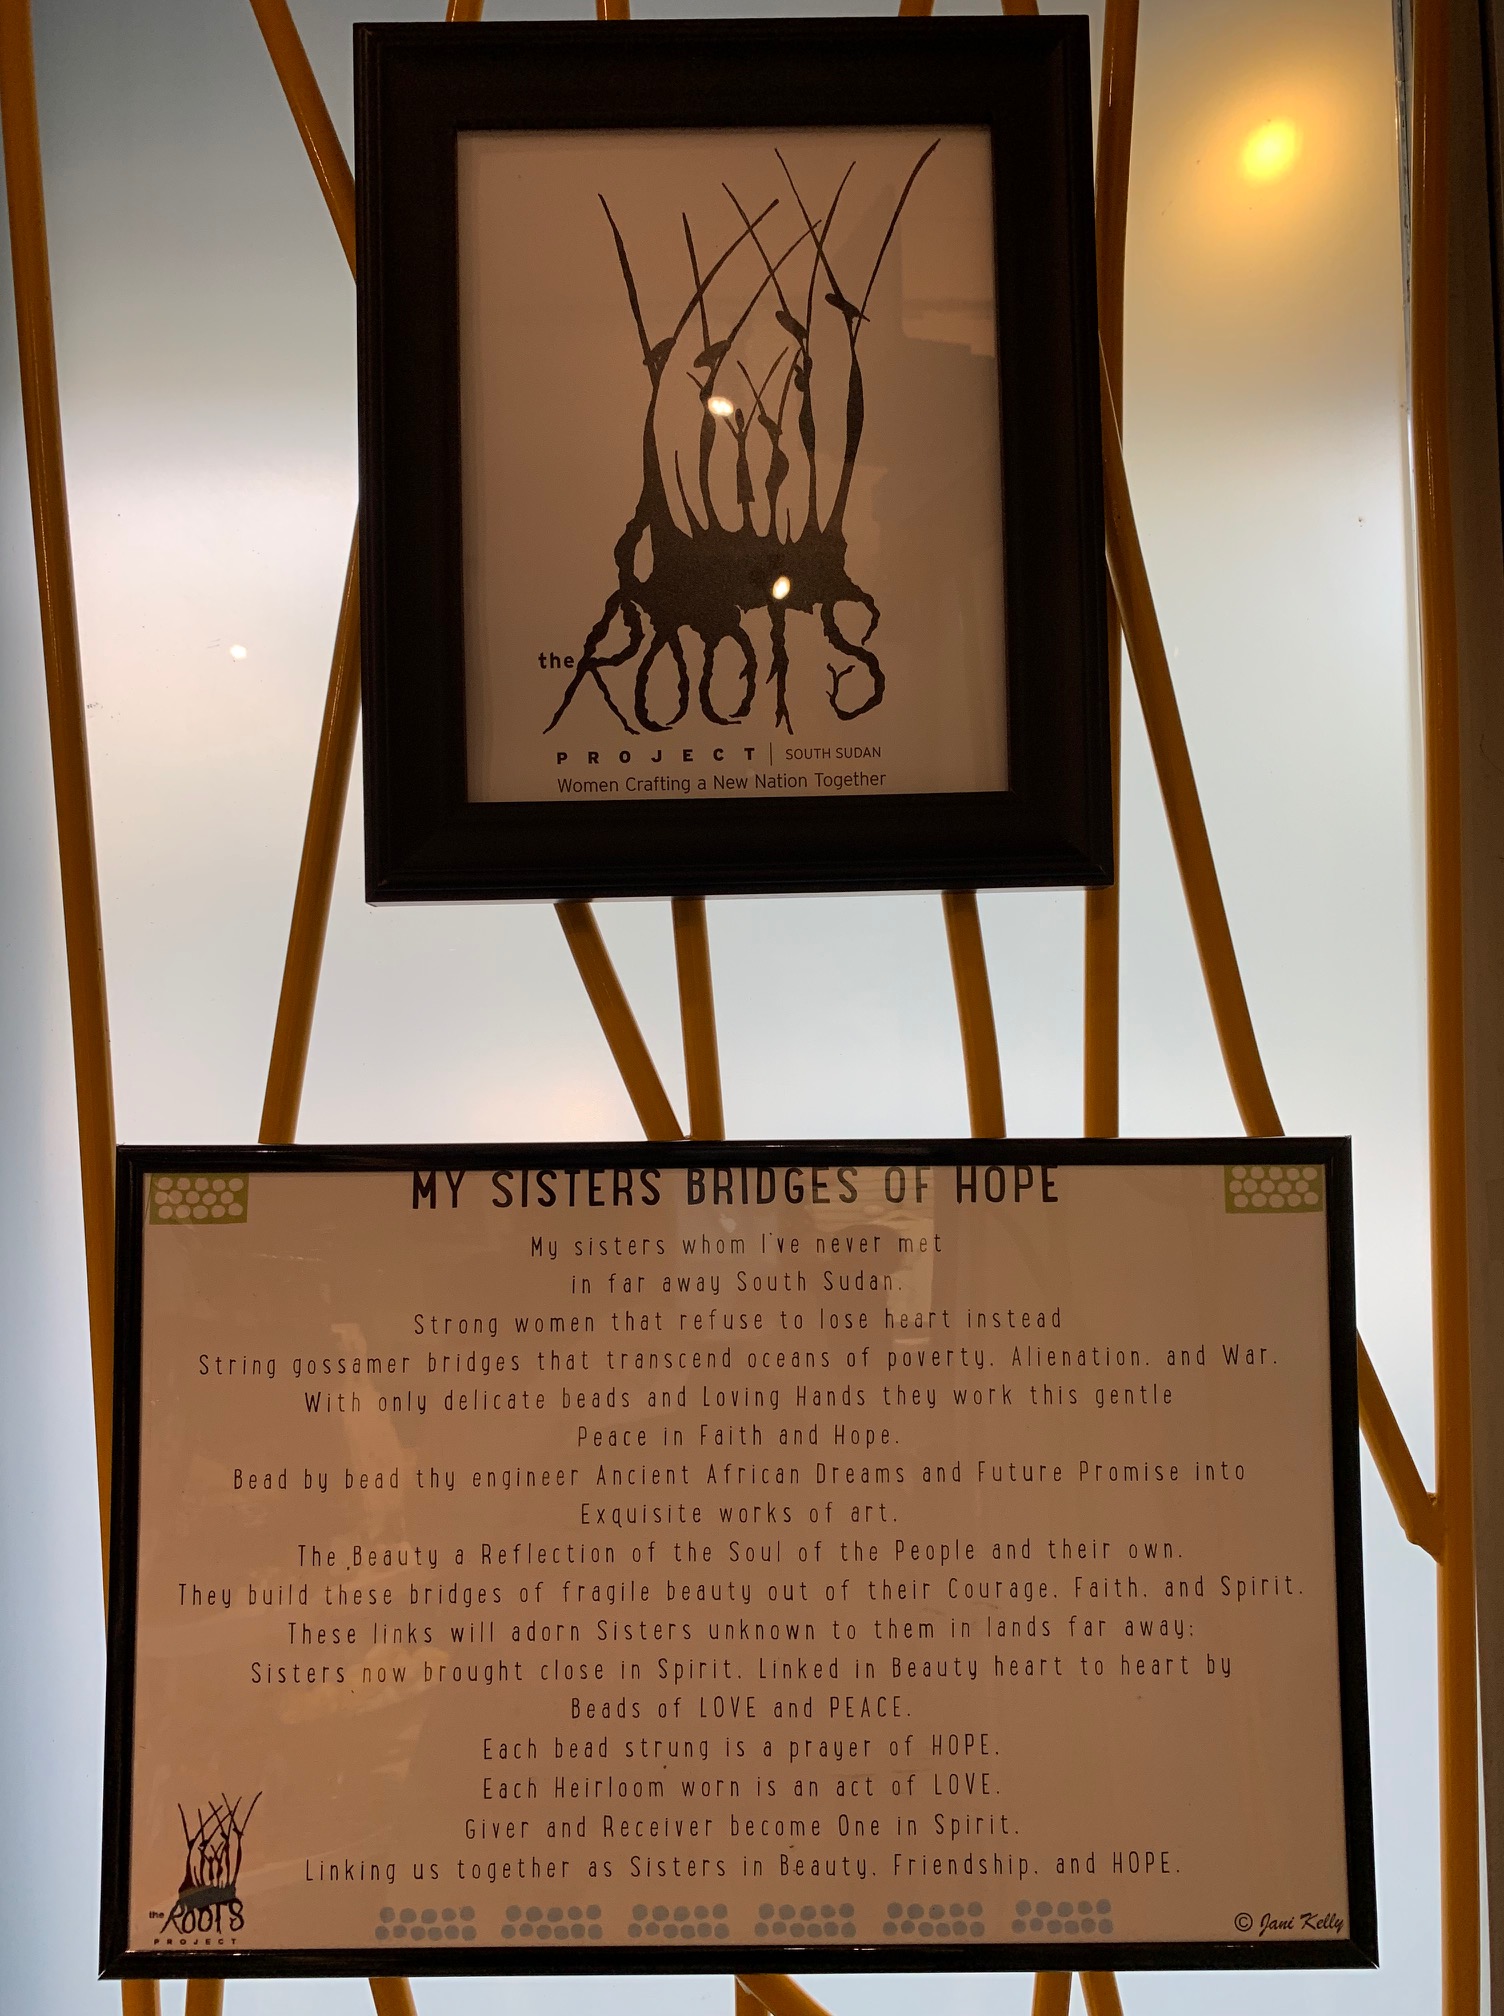 the ROOTS
PROJECT | SOUTH SUDAN
Women Crafting a New Nation Together
MY SISTERS BRIDGES OF HOPE
My sisters whom I've never met
in far away South Sudan.
Strong women that refuse to lose heart instead
String gossamer bridges that transcend oceans of poverty. Alienation. and War.
With only delicate beads and Loving Hands they work this gentle
Peace in Faith and Hope.
Bead by bead thy engineer Ancient African Dreams and Future Promise into
Exquisite works of art.
The Beauty a Reflection of the Soul of the People and their own.
They build these bridges of fragile beauty out of their Courage. Faith. and Spirit.
These links will adorn Sisters unknown to them in lands far away:
Sisters now brought close in Spirit. Linked in Beauty heart to heart by
Beads of LOVE and PEACE.
Each bead strung is a prayer of HOPE.
Each Heirloom worn is an act of LOVE.
Giver and Receiver become One in Spirit.
Linking us together as Sisters in Beauty. Friendship. and HOPE.
the ROOTS
PROJECT
© Jani Kelly